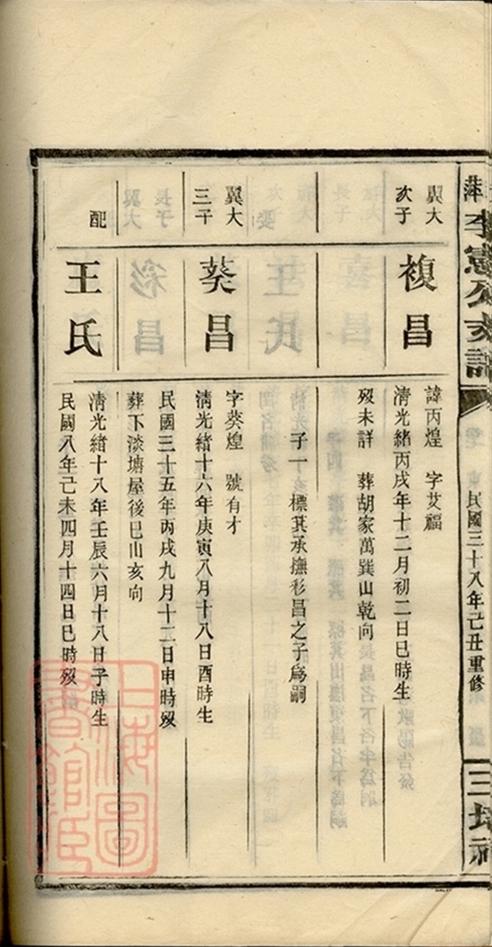 李憲公支譜
民國三十八年己丑重修
翼大
次子
複昌
諱丙煌 字艾福
清光緒丙戌年十二月初二日巳時生
歿未詳 葬胡家萬巽山乾向
子一 標其承撫衫昌之子爲嗣
翼大
三子
葵昌
字葵煌 號有才
清光緒十六年庚寅八月十八日酉時生
民國三十五年丙戌九月十二日申時歿
葬下淡塘屋後巳山亥向
配
王氏
清光緒十八年壬辰六月十八日子時生
民國八年己未四月十四日巳時歿
上海圖
書館藏